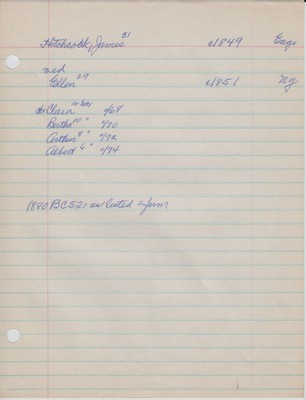 Hitchcock, James 31 c1849 Eng.
md
Ellen 29 c1851 NY
Clara 12 c/68
Bertha 10 " c/70
Arthur 8 " c/72
Albert 6 " c/74
1880 BC52 - as listed - farm